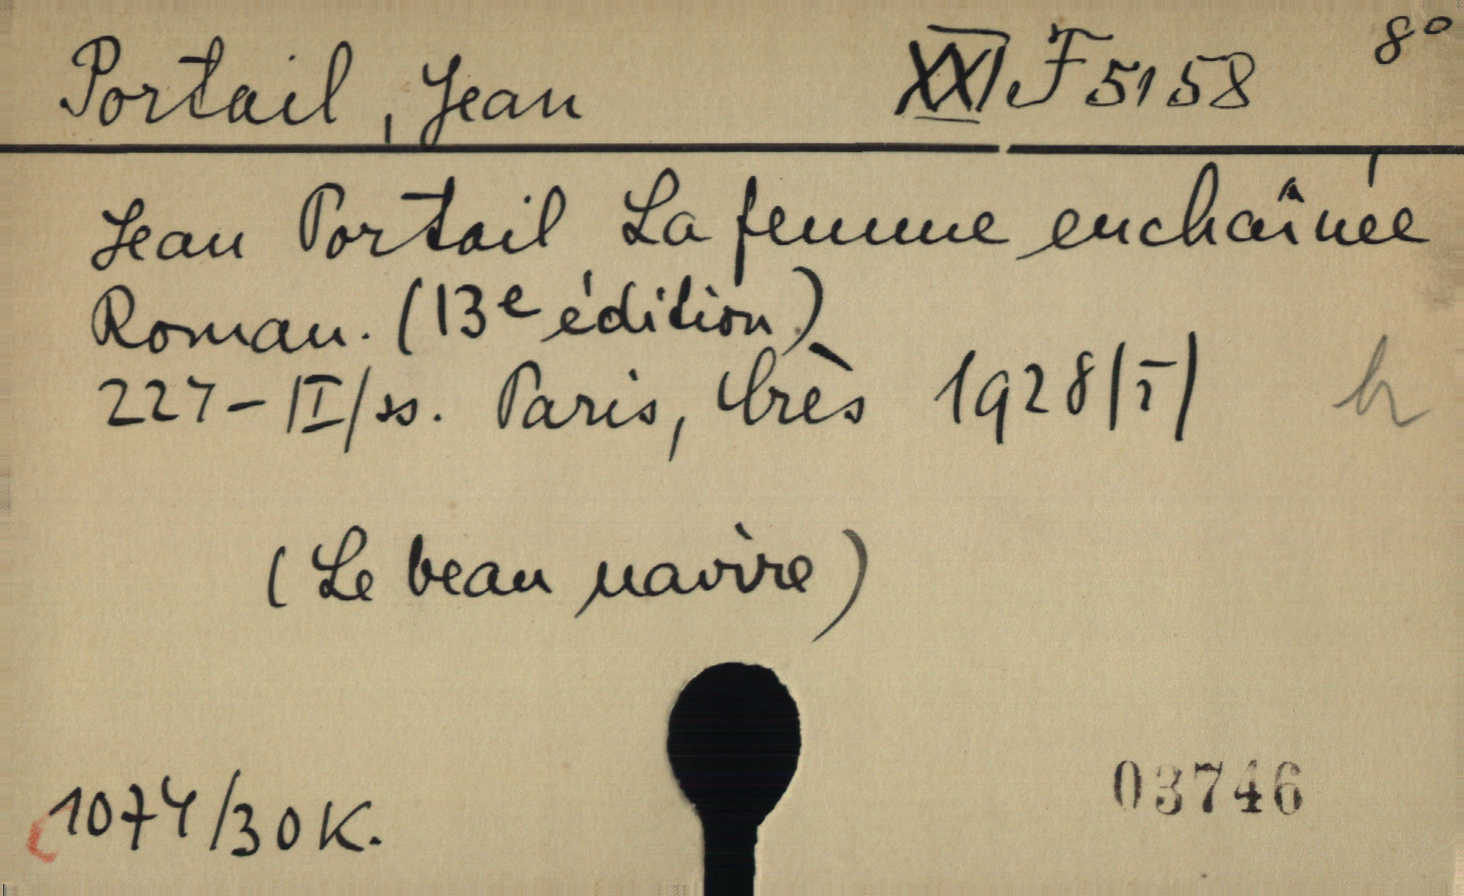 Portail, Jean XXI F 5158 8°
Jean Portail La femme enchaînée
Roman. (13e édition)
227 - |I| ss. Paris, Crès 1928 |I|
(Le beau navire)
1074/30 K.
03746